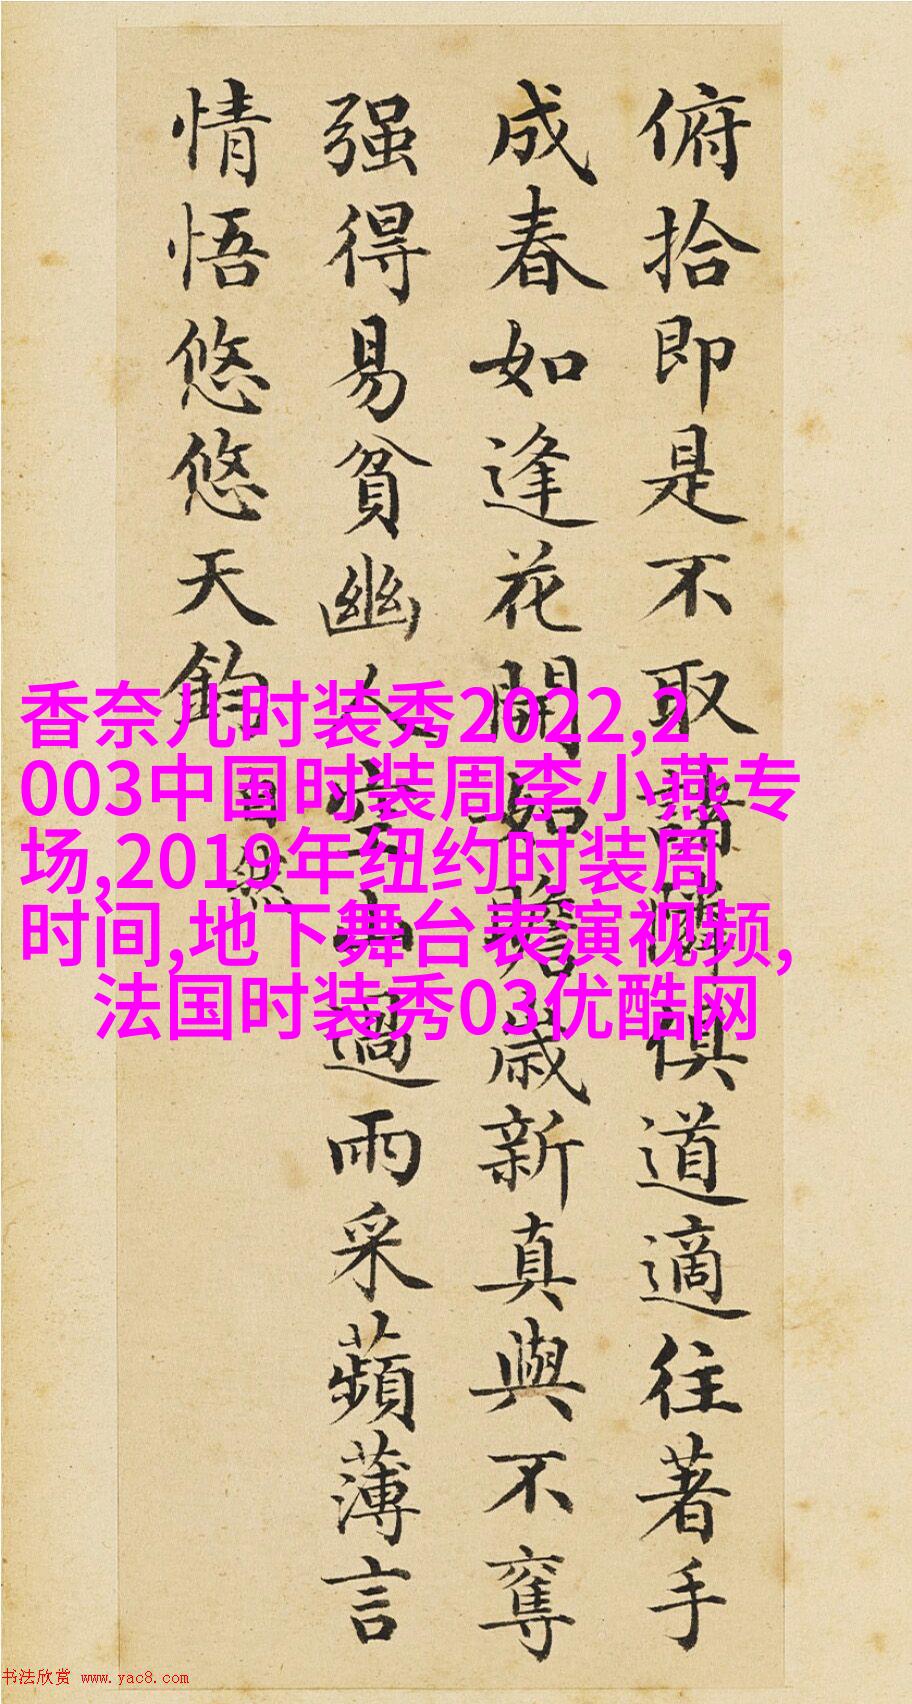 俯拾即是不取諸鄰俱道適往著手
成春如逢花開如瞻歲新真與不奪
强得易貧幽人空山過雨采蘋薄言
情悟悠悠天鈞
自然
香奈儿时装秀2022,2
003中国时装周李小燕专
场,2019年纽约时装周
时间,地下舞台表演视频,
法国时装秀03优酷网
书法欣赏 www.yac8.com